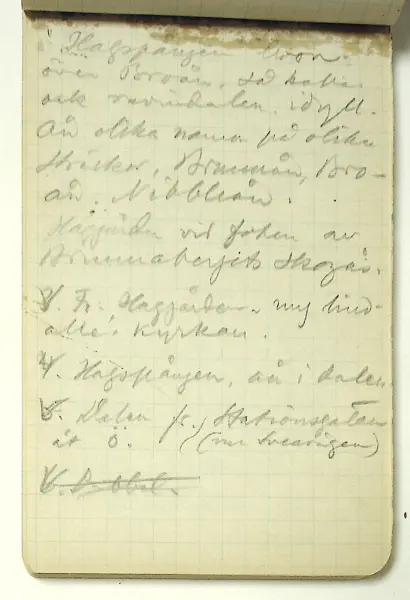 i Hagspången
över Broån, så kalla
och ravindalen, idyll.
Ån olika namn på olika
sträckor, Brunnån, Bro-
ån, Nibbleån.
Hagjärden vid foten av
Brunnabergets skogås.
3. Fr. Hagjärden, ny lind-
allé; kyrkan.
4. Hagspången, ån i dalen
5. Dalen fr. Stationsgatan
åt Ö. (nu Sveavägen)